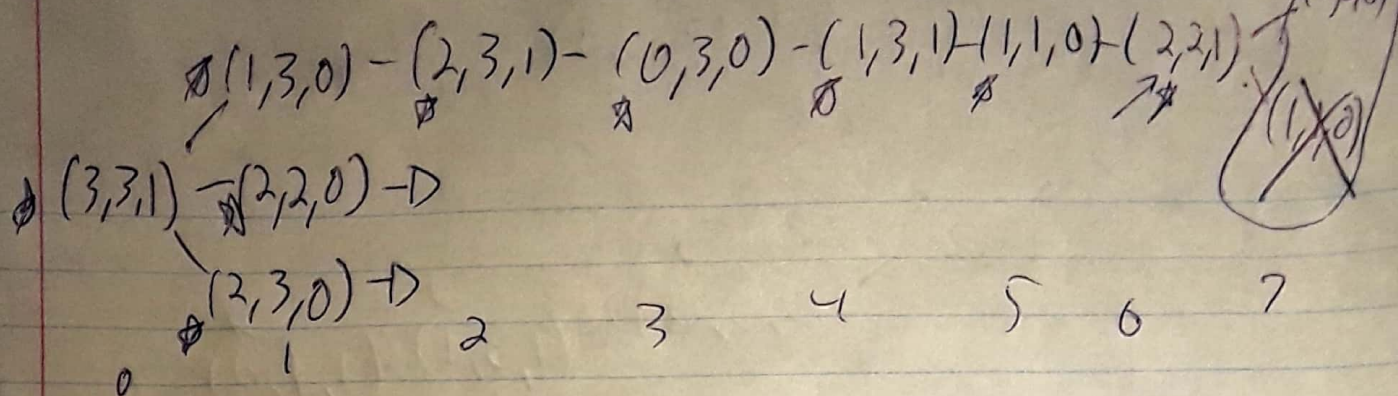 (1,3,0) - (2,3,1) - (0,3,0) - (1,3,1) - (1,1,0) - (2,2,1)
(3,3,1) - (2,2,0) - D
(2,3,0) - D
0 1 2 3 4 5 6 7